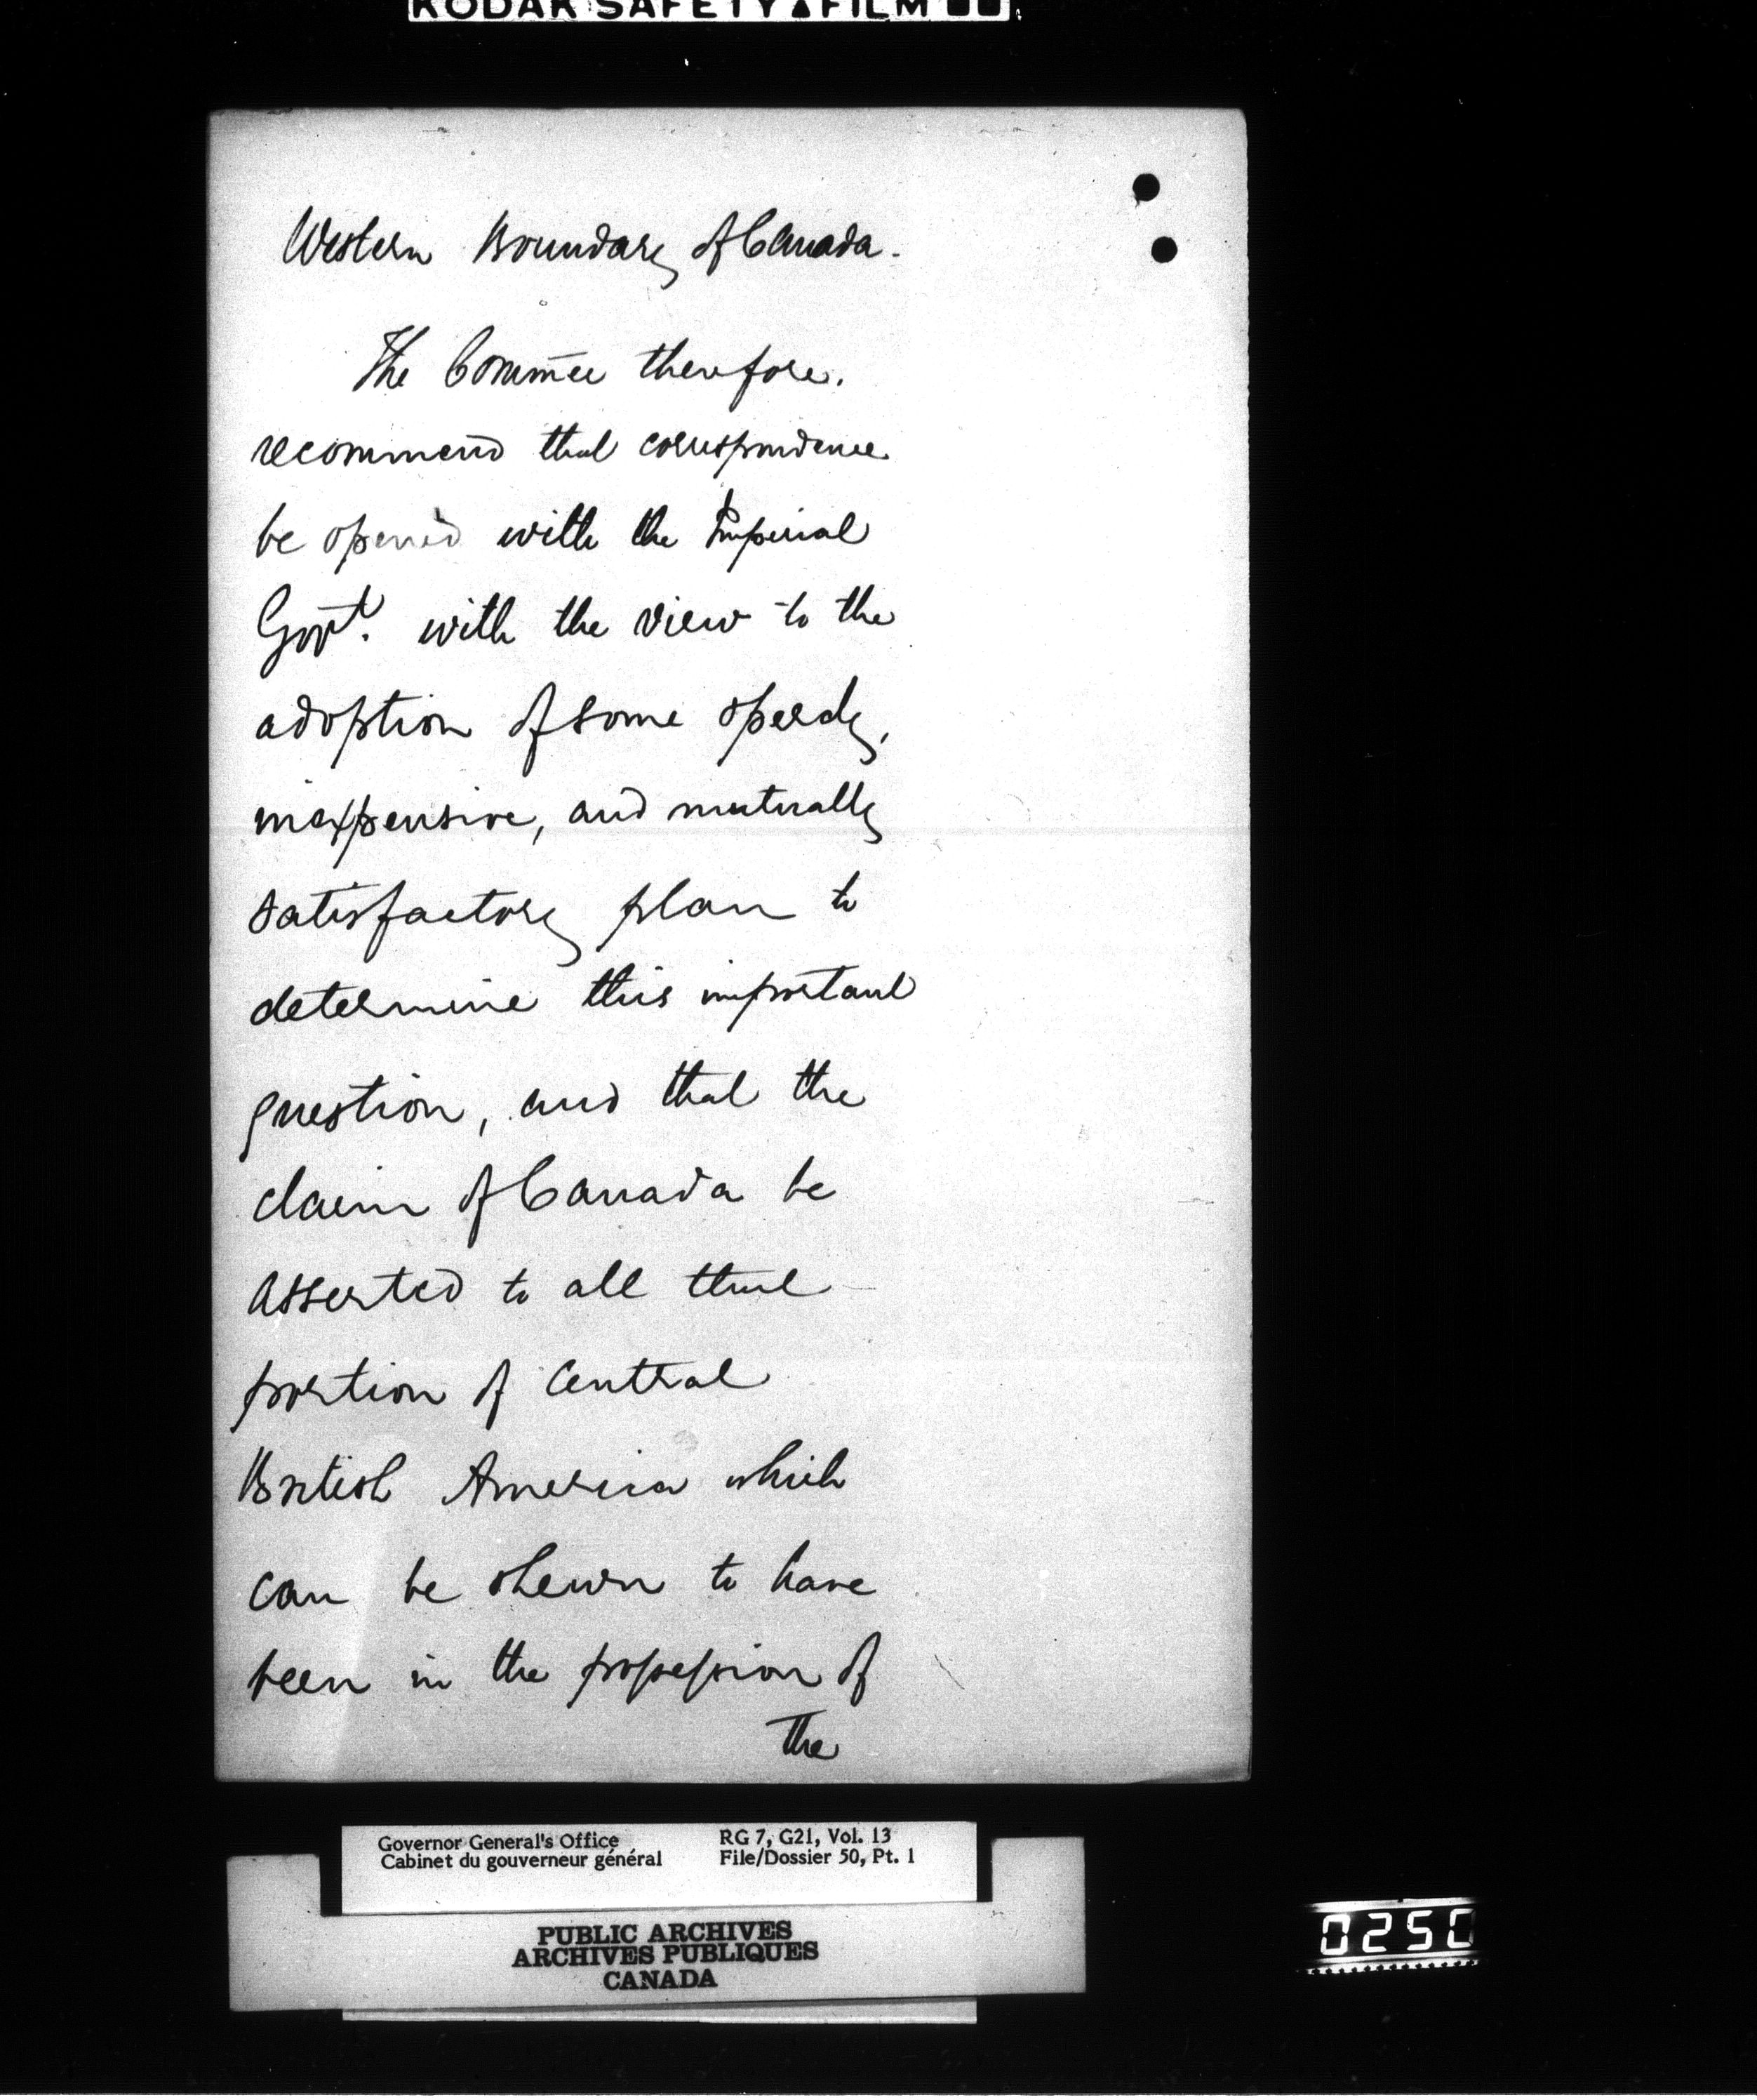 KODAK SAFETY FILM
Western Boundary of Canada.
The Commee therefore.
recommend that correspondence
be opened with the Imperial
Govt. with the view to the
adoption of some speedy,
inexpensive, and mutually
satisfactory plan to
determine this important
question, and that the
claim of Canada be
asserted to all that
portion of Central
British America which
can be shewn to have
been in the possession of
the
Governor General's Office RG 7, G21, Vol. 13
Cabinet du gouverneur général File/Dossier 50, Pt. 1
PUBLIC ARCHIVES
ARCHIVES PUBLIQUES
CANADA
0250